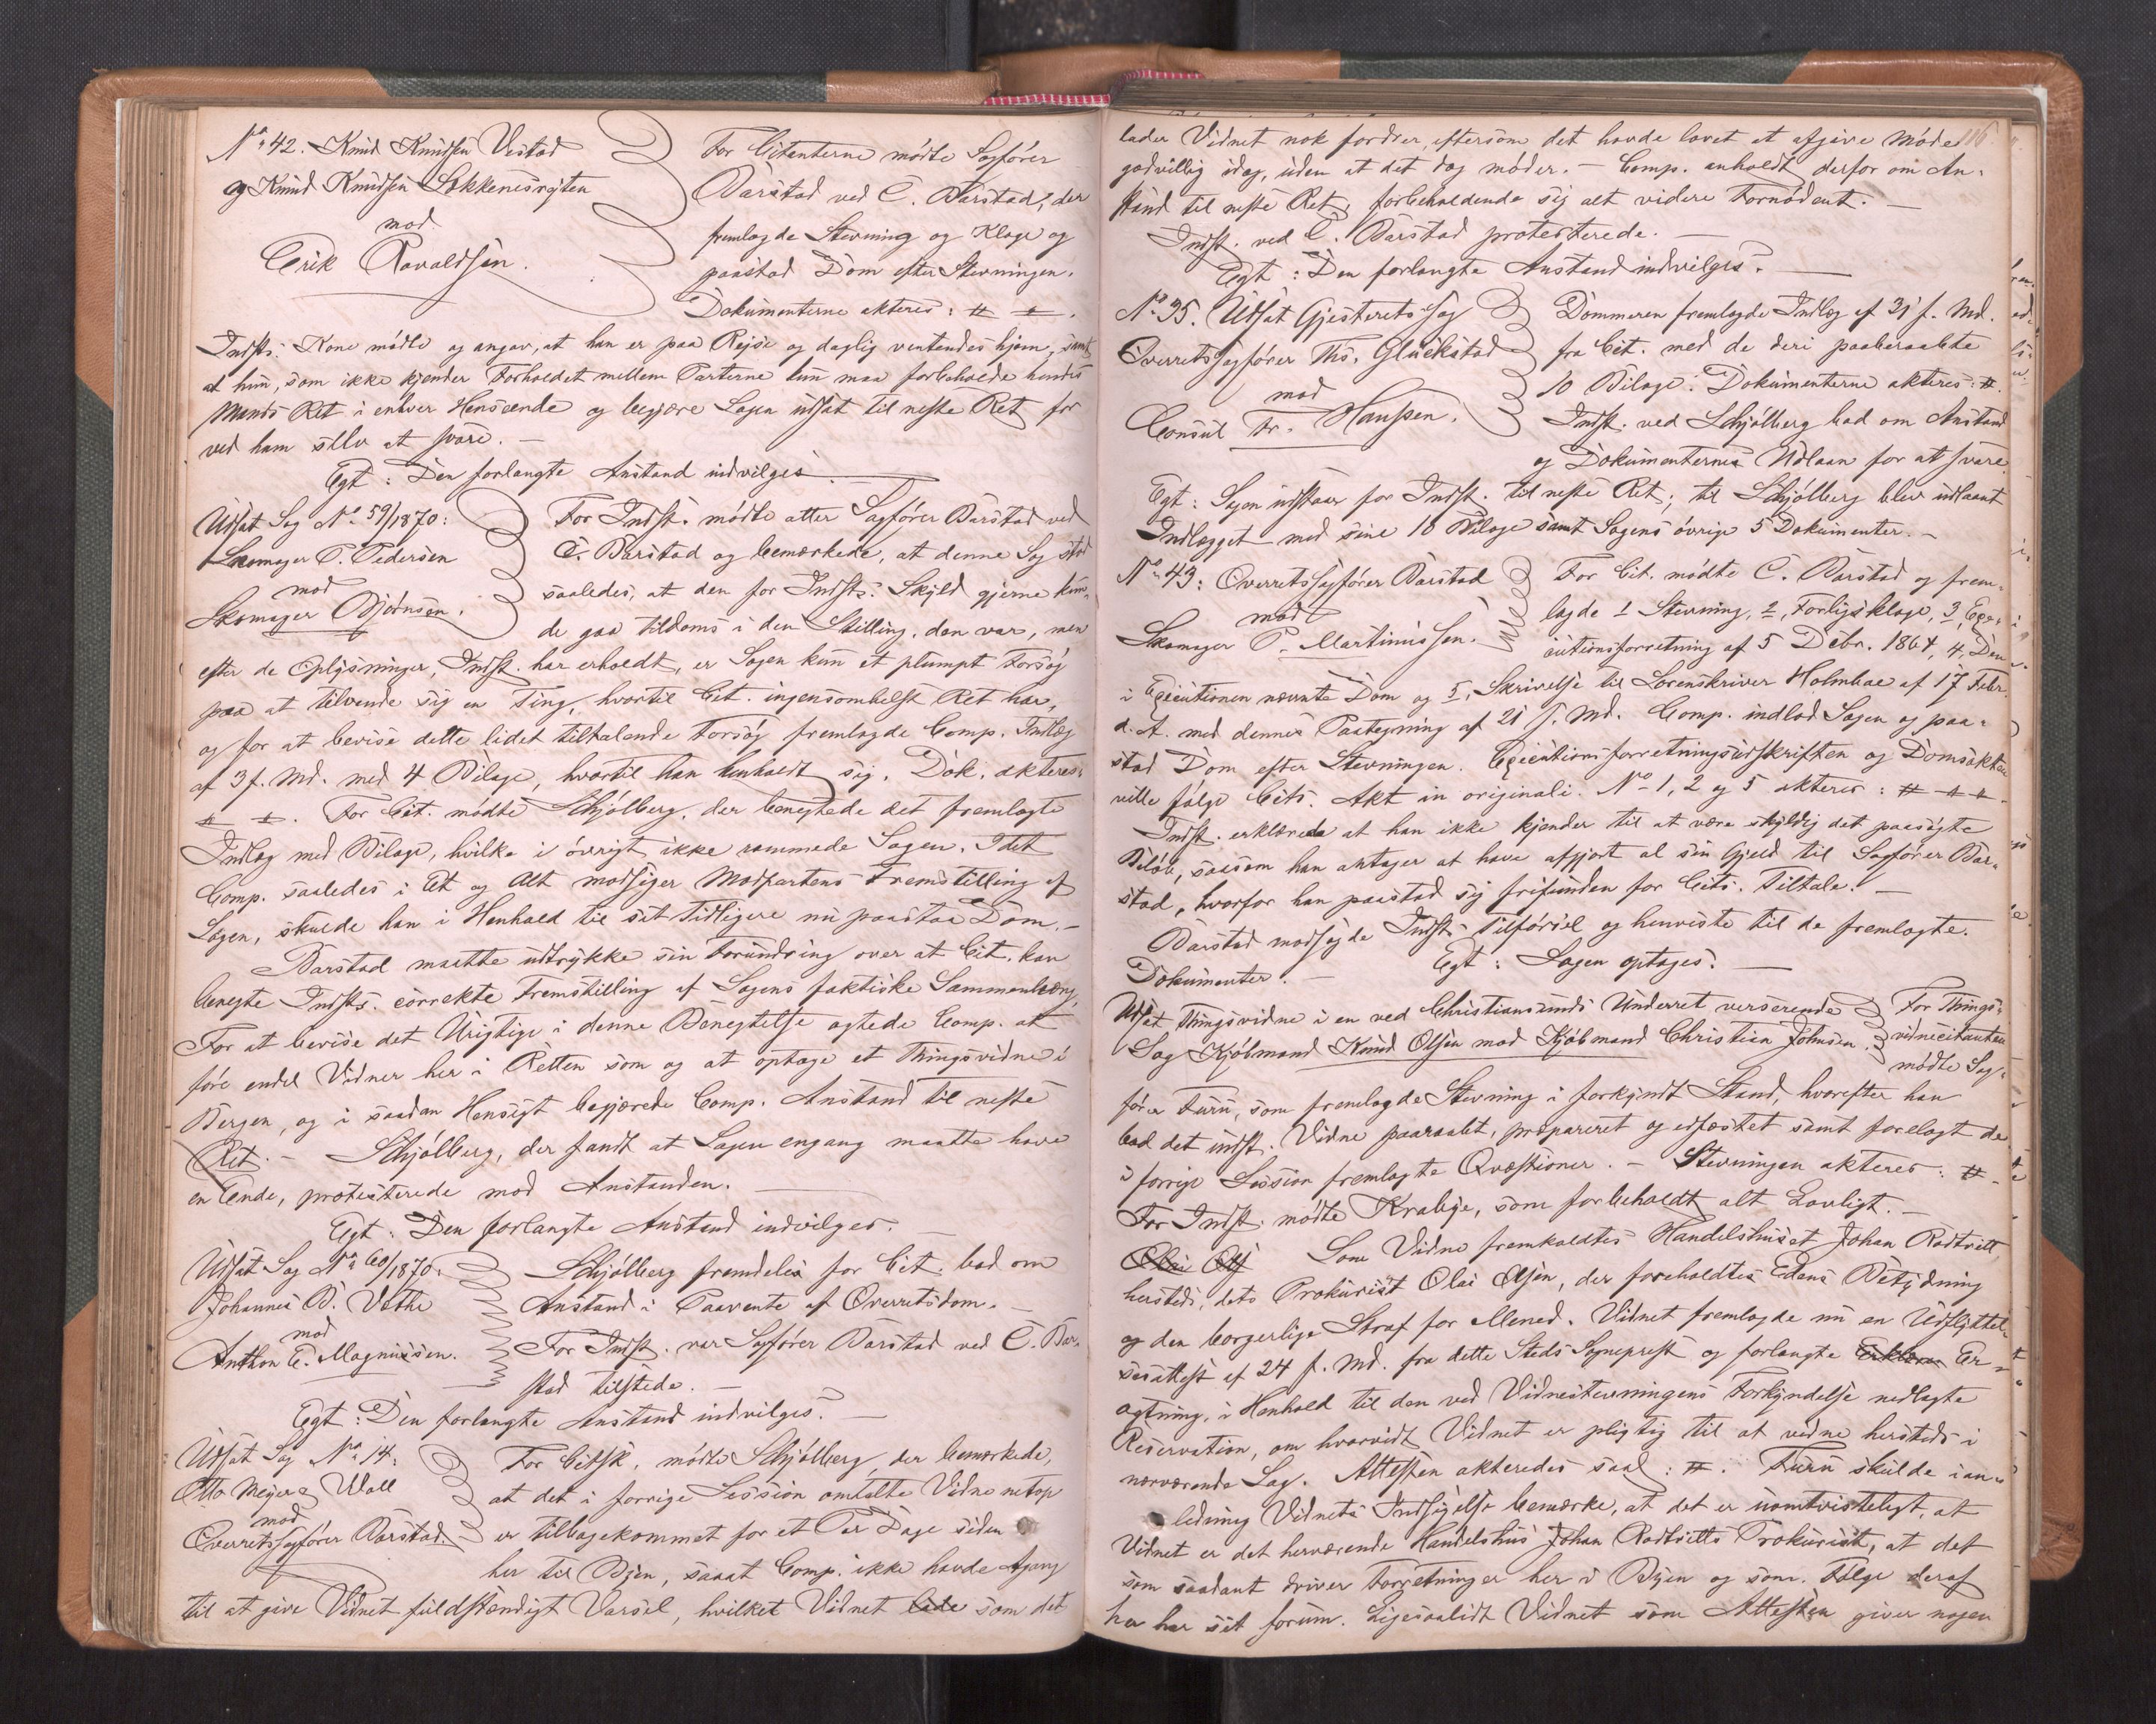 No 42. Knud Knudsen Vestad
og Knud Knudsen Løkkenesrøten
mod
Erik Ravaldsen.
For Citanterne mødte Sagfører
Barstad ved C. Barstad, der
fremlagde Stevning og Klage og
paastod Dom efter Stevningen.
Dokumenterne akteres: # #.
Indsts. Kone mødte og angav, at han er paa Rejse og daglig ventendes hjem, samt
at hun, som ikke kjender Forholdet mellem Parterne kun maa forbeholde hendes
Mands Ret i enhver Henseende og begjære Sagen udsat til neste Ret for
ved ham selv at svare. —
Egt: Den forlangte Anstand indvilges. —
Udsat Sag No 59/1870:
Skomager P. Pedersen
mod
Skomager Bjørnsen.
For Indst. mødte atter Sagfører Barstad ved
C. Barstad og bemærkede, at denne Sag stod
saaledes, at den for Indsts. Skyld gjerne kun-
de gaa tildoms i den Stilling, den var, men
efter de Oplysninger, Indst. har erholdt, er Sagen kun et plumpt Forsøg
paa at tilvende sig en Ting, hvortil Cit. ingensomhelst Ret har,
og for at bevise dette lidet tiltalende Forsøg fremlagde Comp. Indlæg
af 3 f. Md. med 4 Bilage, hvortil han henholdt sig. Dok. akteres:
# #. For Cit. mødte Schjølberg, der benegtede det fremlagte
Indlæg med Bilage, hvilke i øvrigt ikke rammede Sagen. Idet
Comp. saaledes i Et og Alt modsiger Modpartens Fremstilling af
Sagen, skulde han i Henhold til sit Tidligere nu paastaa Dom. —
Barstad maatte udtrykke sin Forundring over at Cit. kan
benegte Indsts. correkte Fremstilling af Sagens faktiske Sammenhæng,
For at bevise det Urigtige i denne Benegtelse agtede Comp. at
føre endel Vidner her i Retten som og at optage et Thingsvidne i
Bergen, og i saadan Hensigt begjærede Comp. Anstand til neste
Ret. — Schjølberg, der fandt at Sagen engang maatte have
en Ende, protesterede mod Anstanden. —
Egt: Den forlangte Anstand indvilges. —
Udsat Sag No 60/1870:
Johannes B. Vethe
mod
Anthon E. Magnussen.
Schjølberg fremdeles for Cit. bad om
Anstand i Paavente af Overretsdom. —
For Indst. var Sagfører Barstad ved C. Bar-
stad tilstede. —
Egt: Den forlangte Anstand indvilges. —
Udsat Sag No 14:
Otto Meyer & Wall
mod
Overretssagfører Barstad.
For Citsk. mødte Schjølberg, der bemærkede,
at det i forrige Session omtalte Vidne netop
er tilbagekommet for et Par Dage siden
her til Byen, saaat Comp. ikke havde Agang
til at give Vidnet fuldstændigt Varsel, hvilket Vidnet som det
116
lader Vidnet nok fordrer, eftersom det havde lovet at afgive Møde
godvillig idag, uden at det dog møder. — Comp. anholdt derfor om An-
stand til neste Ret, forbeholdende sig alt videre Fornødent. —
Indst. ved C. Barstad protesterede. —
Egt: Den forlangte Anstand indvilges. —
No 35. Udsat Gjesterets Sag
Overretssagfører Ths. Gluckstad
mod
Consul Fr. Hanssen.
Dommeren fremlagde Indlæg af 31 f. Md.
fra Cit. med de deri paaberaabte
10 Bilage. Dokumenterne akteres: #.
Indst. ved Schjølberg bad om Anstand
og Dokumenternes Udlaan for at svare.
Egt: Sagen udstaar for Indst. til neste Ret; til Schjølberg blev udlaant
Indlægget med sine 10 Bilage samt Sagens øvrige 5 Dokumenter. —
No 43: Overretssagfører Barstad
mod
Skomager P. Martinussen.
For Cit. mødte C. Barstad og frem-
lagde 1 Stevning, 2, Forligsklage, 3, Exe-
cutionsforretning af 5 Debr. 1864, 4, Den
i Executionen nævnte Dom og 5, Skrivelse til Sorenskriver Holmboe af 17 Febr.
d. A. med dennes Paategning af 21 s. Md. Comp. indlod Sagen og paa-
stod Dom efter Stevningen. Executionsforretningsudskriften og Domsakten
ville følge Cits. Akt in originali. No 1, 2 og 5 akteres: # # #.
Indst. erklærede at han ikke kjender til at være skyldig det paasøgte
Beløb, saasom han antager at have afgjort al sin Gjeld til Sagfører Bar-
stad, hvorfor han paastod sig frifunden for Cits. Tiltale. —
Barstad modsagde Indsts. Tilførsel og henviste til de fremlagte
Dokumenter. — Egt: Sagen optages. —
Udsat Thingsvidne i en ved Christiansunds Underret verserende
Sag Kjøbmand Knud Olsen mod Kjøbmand Christian Johnsen.
For Things-
vidnecitanten
mødte Sag-
fører Furu, som fremlagde Stevning i forkyndt Stand, hvorefter han
bad det indst. Vidne paaraabt, præpareret og edfæstet samt forelagt de
i forrige Session fremlagte Qvæstioner. — Stevningen akteres: # —
For Indst. mødte Krabye, som forbeholdt alt Lovligt. —
Olai Ols Som Vidne fremkaldtes Handelshuset Johan Rodtvitt
hersteds, dets Prokurist Olai Olsen, der foreholdtes Edens Betydning
og den borgerlige Straf for Mened. Vidnet fremlagde nu en Udflyttel-
sesattest af 24 f. Md. fra dette Steds Sogneprest og forlangte Erklære Er-
agtning, i Henhold til den ved Vidnestevningens Forkyndelse nedlagte
Reservation, om hvorvidt Vidnet er pligtig til at vidne hersteds i
nærværende Sag. Attesten akteredes saal: #. Furu skulde i an-
ledning Vidnets Indsigelse bemærke, at det er uomtvisteligt, at
Vidnet er det herværende Handelshus Johan Rodtvitts Prokurist, at det
som saadant driver Forretninger her i Byen og som Følge deraf
har her sit forum. Ligesaalidt Vidnet som Attesten giver nogen